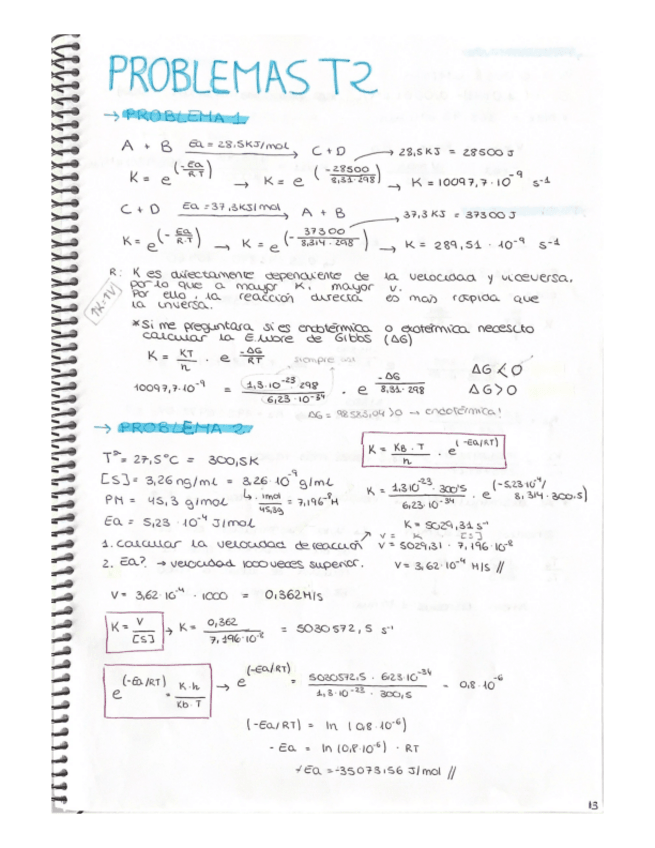 PROBLEMAS T2
→ PROBLEMA 1
A + B Ea = 28,5KJ/mol → C + D → 28,5 KJ = 28500 J
K = e^(-Ea/RT) → K = e^(-28500/8,31·298) → K = 10097,7·10^-9 s^-1
C + D Ea = 37,3KJ/mol → A + B → 37,3 KJ = 37300 J
K = e^(-Ea/R·T) → K = e^(-37300/8,314·298) → K = 289,51·10^-9 s^-1
R: K es directamente dependiente de la velocidad y viceversa,
por lo que a mayor K, mayor v.
Por ello, la reacción directa es más rápida que
la inversa.
↑K=↑V
*Si me preguntara si es endotérmica o exotérmica necesito
calcular la E.libre de Gibbs (ΔG)
K = KT/h · e^(-ΔG/RT) siempre
10097,7·10^-9 = 1,3·10^-23·298/6,23·10^-34 · e^(-ΔG/8,31·298) ΔG < 0
ΔG > 0
ΔG = 92523,04 > 0 → endotérmica!
→ PROBLEMA 2.
K = KB·T/h · e^(-Ea/RT)
Tª = 27,5°C = 300,5K
[S] = 3,26 ng/ml = 3,26·10^-9 g/ml
PM = 45,3 g/mol ↳ · 1mol/45,3g = 7,196^-8 M
K = 1,3·10^-23·300'5/6,23·10^-34 · e^(-5,23·10^-4/8,314·300.5)
Ea = 5,23·10^-4 J/mol
K = 5029,31 s^-1
v = K [S]
1. calcular la velocidad de reacción V = 5029,31 · 7,196·10^-8
2. Ea? → velocidad 1000 veces superior. V = 3,62·10^-4 M/s //
V = 3,62·10^-4 · 1000 = 0,362M/s
K = V/[S] → K = 0,362/7,196·10^-8 = 5030572,5 s^-1
e^(-Ea/RT) = K·h/Kb·T → e^(-Ea/RT) = 5030572,5 · 6,23·10^-34/1,3·10^-23 · 300,5 = 0,8·10^-6
(-Ea/RT) = ln (0,8·10^-6)
-Ea = ln (0,8·10^-6) · RT
-Ea = -35073,56 J/mol //
13